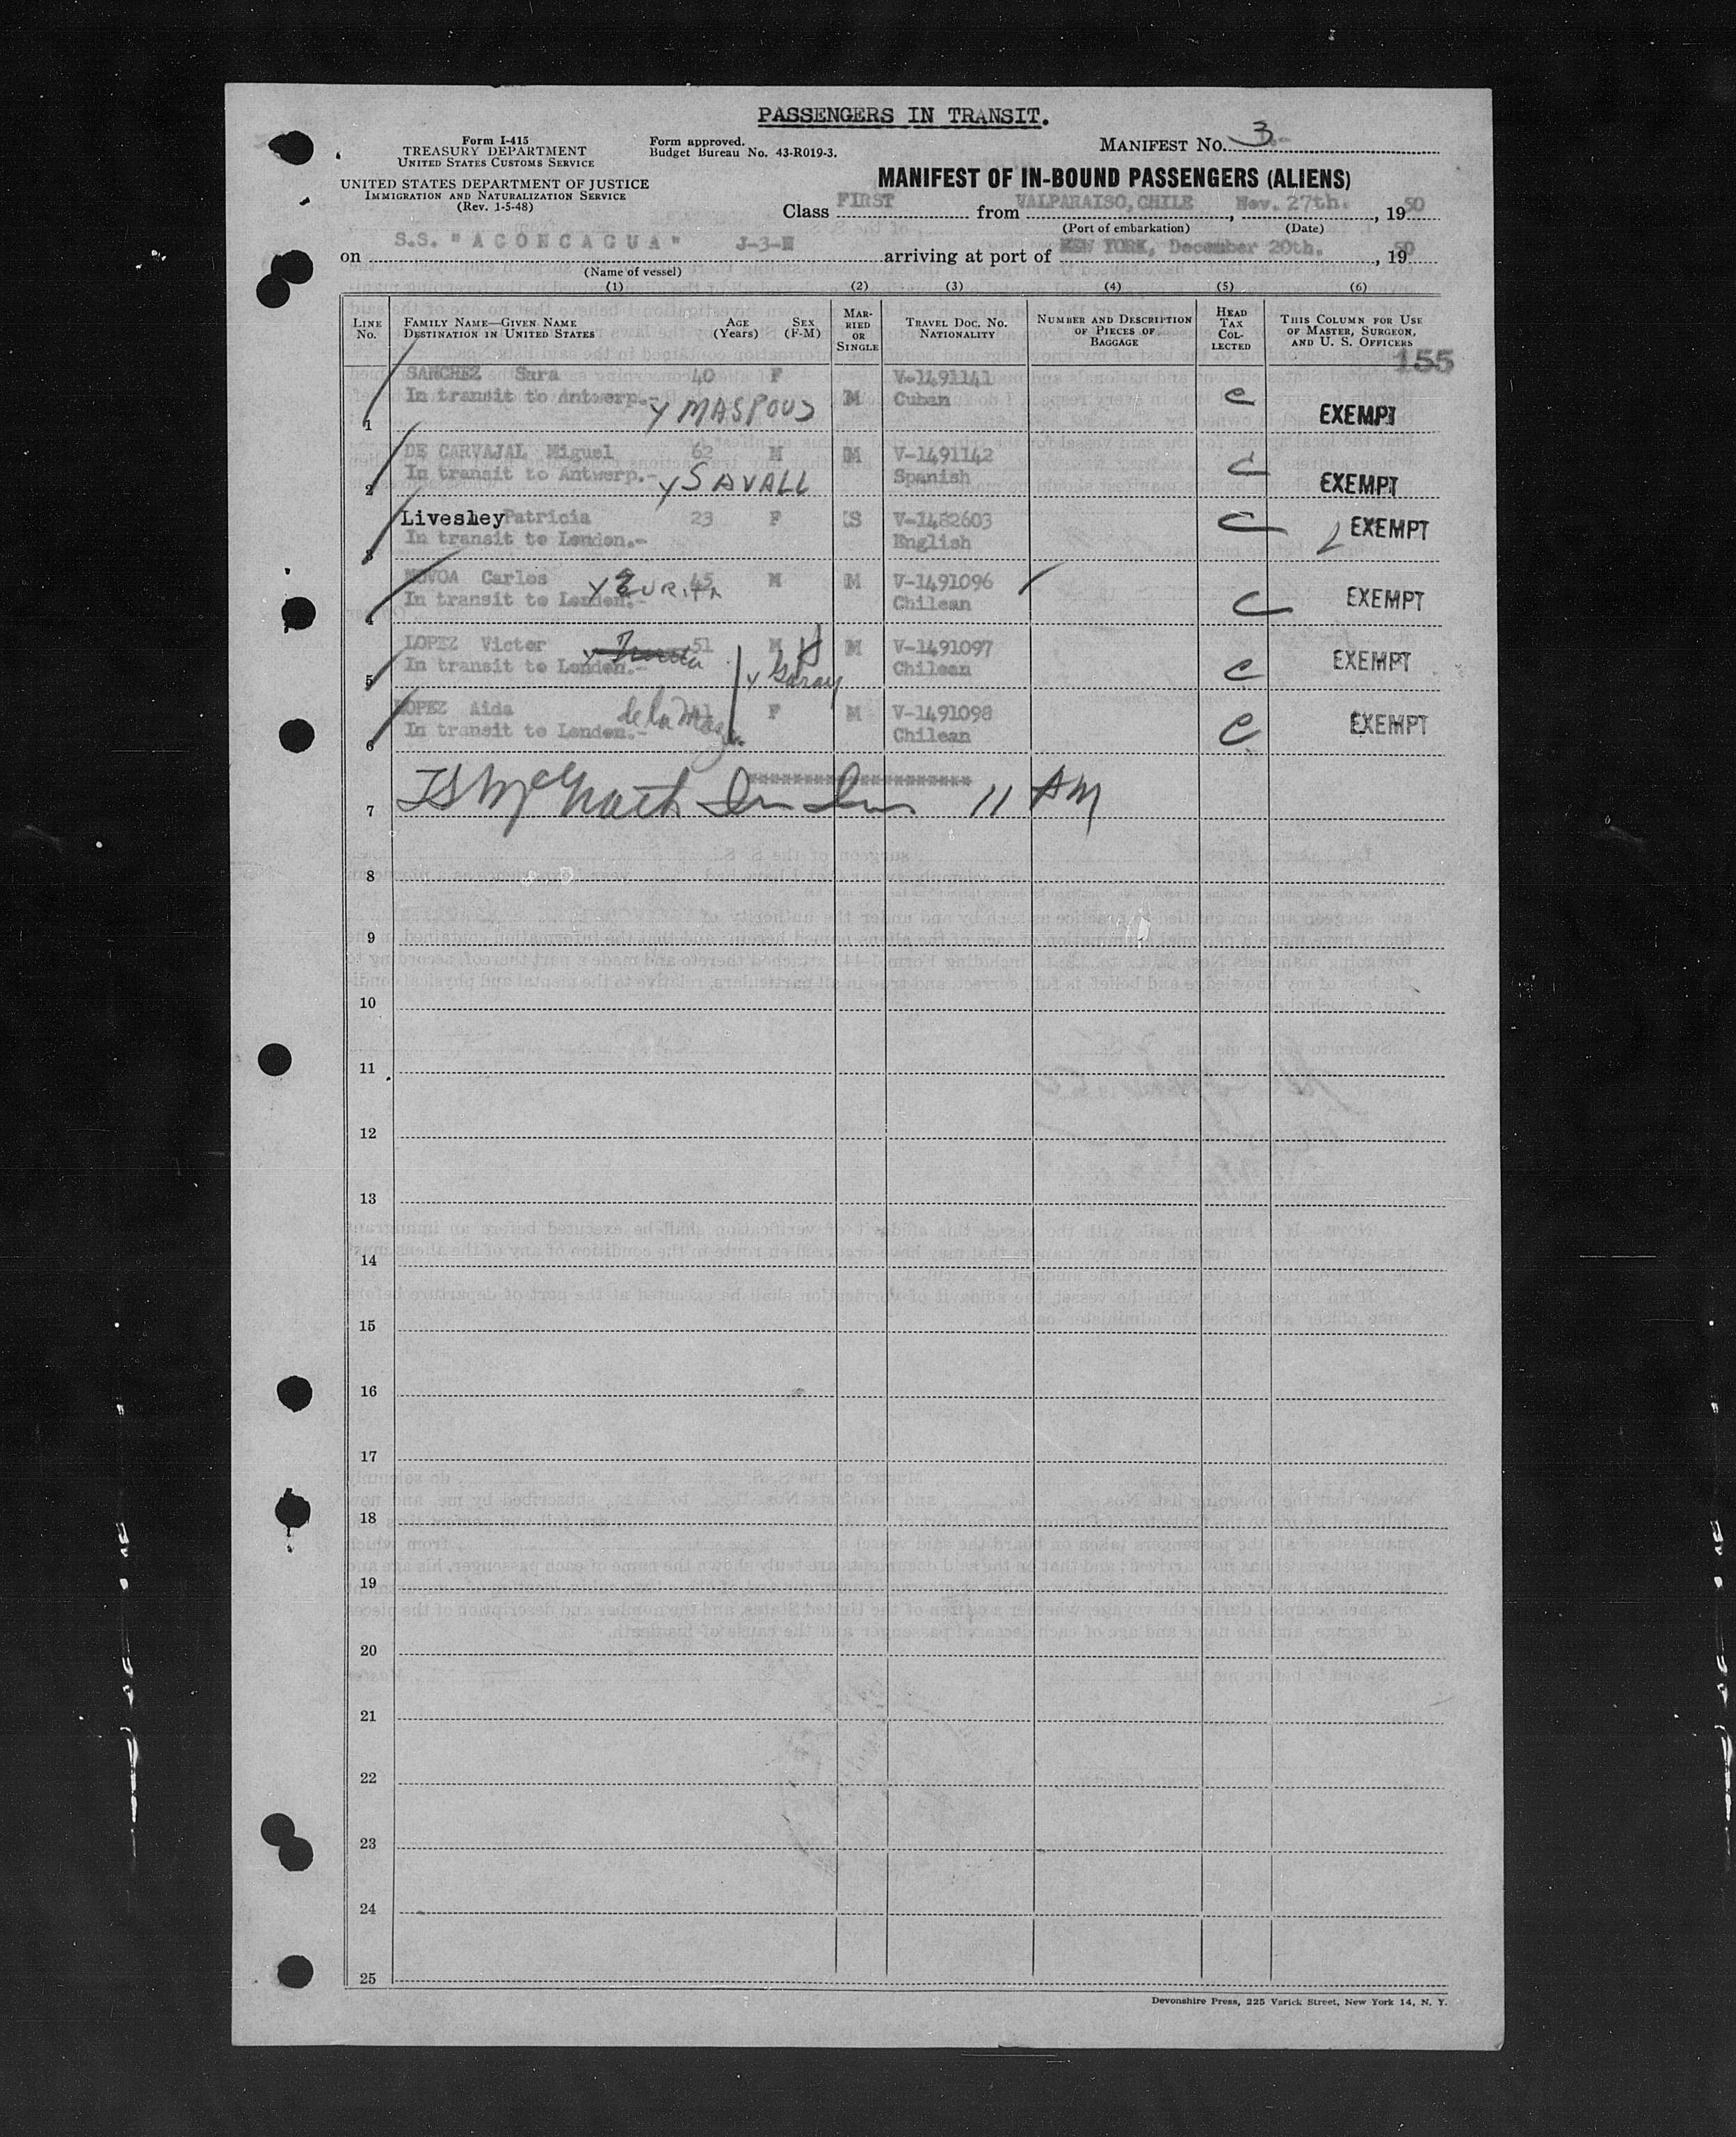 PASSENGERS IN TRANSIT.
Form I-415
TREASURY DEPARTMENT
UNITED STATES CUSTOMS SERVICE
Form approved.
Budget Bureau No. 43-R019-3.
MANIFEST NO. 3
UNITED STATES DEPARTMENT OF JUSTICE
IMMIGRATION AND NATURALIZATION SERVICE
(Rev. 1-5-48)
MANIFEST OF IN-BOUND PASSENGERS (ALIENS)
Class FIRST from VALPARAISO, CHILE , Nov. 27th. , 19 50
(Port of embarkation) (Date)
on S.S. "ACONCAGUA" J-3-N arriving at port of NEW YORK, December 20th. , 19 50
(Name of vessel)
(1) (2) (3) (4) (5) (6)
LINE NO. FAMILY NAME—GIVEN NAME DESTINATION IN UNITED STATES AGE (Years) SEX (F-M) MARRIED OR SINGLE TRAVEL DOC. NO. NATIONALITY NUMBER AND DESCRIPTION OF PIECES OF BAGGAGE HEAD TAX COLLECTED THIS COLUMN FOR USE OF MASTER, SURGEON, AND U. S. OFFICERS
155
SANCHEZ Sara 40 F V-1491141
1 In transit to Antwerp.- y MASPOUS M Cuban C EXEMPT
DE CARVAJAL Miguel 62 M M V-1491142
2 In transit to Antwerp.- y SAVALL Spanish C EXEMPT
Livesley Patricia 23 F S V-1482603
3 In transit to London.- English C EXEMPT
NOVOA Carlos y ZURITA 45 M M V-1491096
4 In transit to London.- Chilean C EXEMPT
LOPEZ Victor 51 M M V-1491097
5 In transit to London.- y Garay Chilean C EXEMPT
LOPEZ Aida F M V-1491098
6 In transit to London.- de la Chilean C EXEMPT
********************
7 McGrath 11 AM
8
9
10
11
12
13
14
15
16
17
18
19
20
21
22
23
24
25
Devonshire Press, 225 Varick Street, New York 14, N. Y.